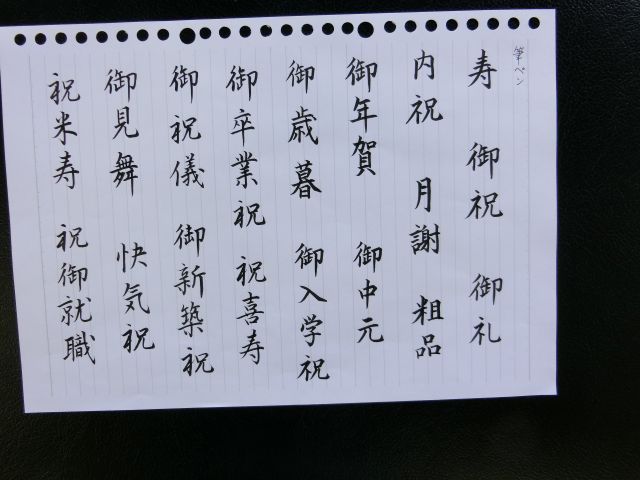 筆ペン
寿 御祝 御礼
内祝 月謝 粗品
御年賀 御中元
御歳暮 御入学祝
御卒業祝 祝喜寿
御祝儀 御新築祝
御見舞 快気祝
祝米寿 祝御就職